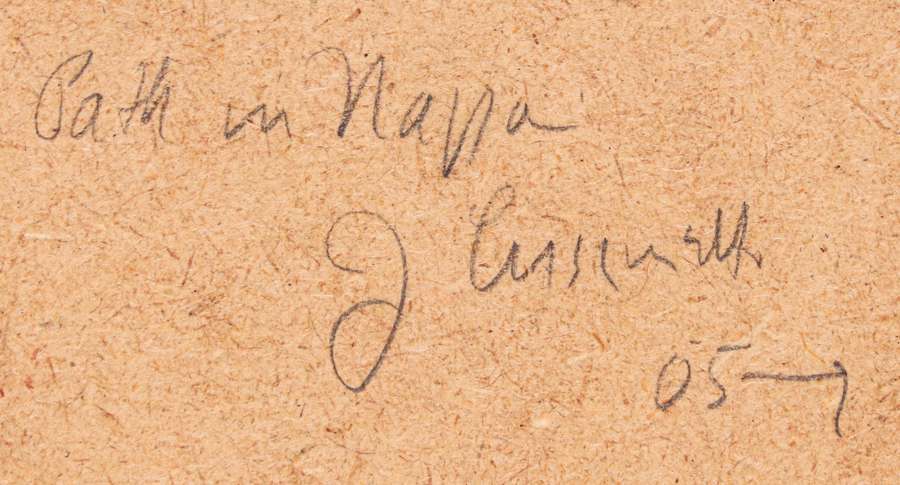 Path in Nappa
J
05